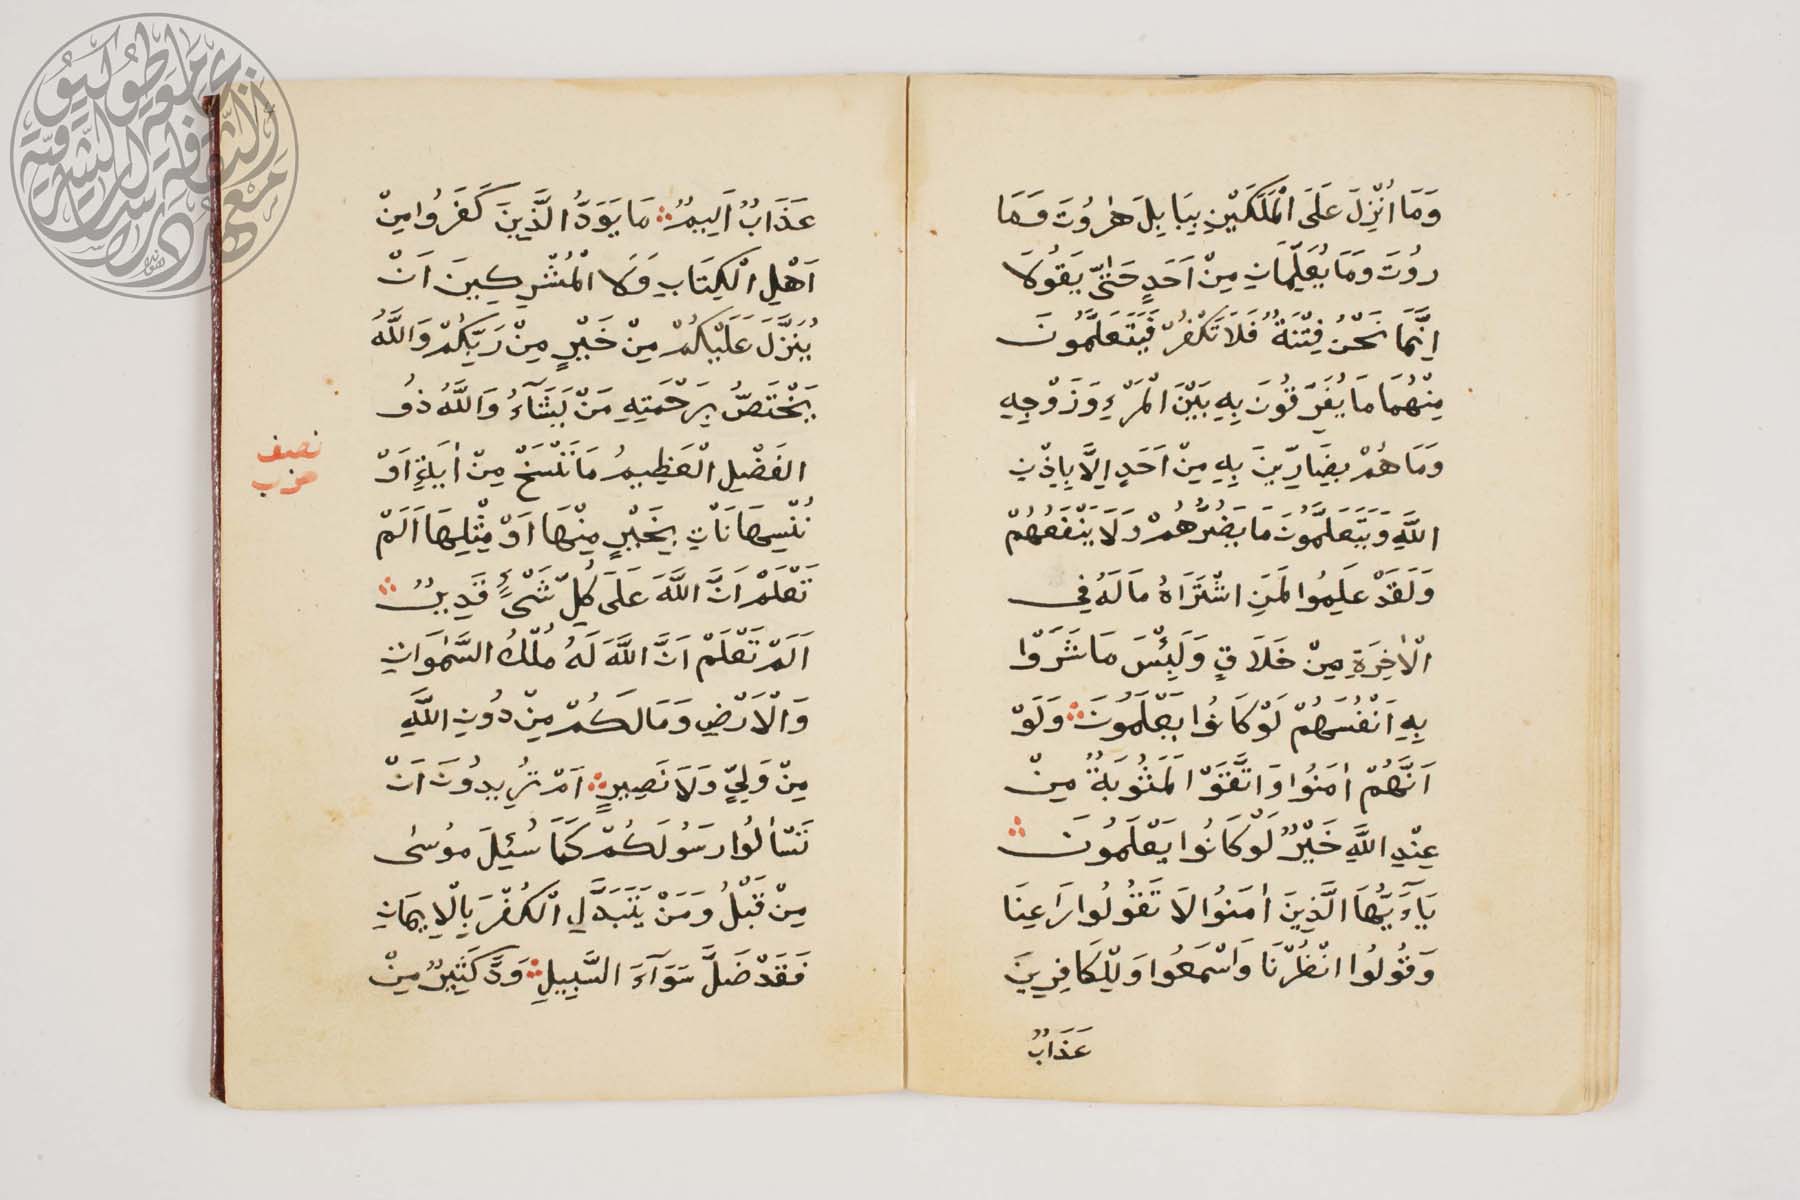 وَمَا اُنْزِلَ عَلَى الْمَلَكَيْنِ بِبَابِلَ هٰرُوتَ وَمَا
رُوتَ وَمَا يُعَلِّمَانِ مِنْ اَحَدٍ حَتّٰى يَقُولَا
اِنَّمَا نَحْنُ فِتْنَةٌ فَلَا تَكْفُرْ فَيَتَعَلَّمُونَ
مِنْهُمَا مَا يُفَرِّقُونَ بِهِ بَيْنَ الْمَرْءِ وَزَوْجِهِ
وَمَا هُمْ بِضَارِّينَ بِهِ مِنْ اَحَدٍ اِلَّا بِاِذْنِ
اللَّهِ وَيَتَعَلَّمُونَ مَا يَضُرُّهُمْ وَلَا يَنْفَعُهُمْ
وَلَقَدْ عَلِمُوا لَمَنِ اشْتَرَاهُ مَا لَهُ فِي
الْاٰخِرَةِ مِنْ خَلَاقٍ وَلَبِئْسَ مَا شَرَوْا
بِهِ اَنْفُسَهُمْ لَوْ كَانُوا يَعْلَمُونَ وَلَوْ
اَنَّهُمْ اٰمَنُوا وَاتَّقَوْا لَمَثُوبَةٌ مِنْ
عِنْدِ اللَّهِ خَيْرٌ لَوْ كَانُوا يَعْلَمُونَ
يَآءَيُّهَا الَّذِينَ اٰمَنُوا لَا تَقُولُوا رَاعِنَا
وَقُولُوا انْظُرْنَا وَاسْمَعُوا وَلِلْكَافِرِينَ
عَذَابٌ
عَذَابٌ اَلِيمٌ مَا يَوَدُّ الَّذِينَ كَفَرُوا مِنْ
اَهْلِ الْكِتَابِ وَلَا الْمُشْرِكِينَ اَنْ
يُنَزَّلَ عَلَيْكُمْ مِنْ خَيْرٍ مِنْ رَبِّكُمْ وَاللَّهُ
يَخْتَصُّ بِرَحْمَتِهِ مَنْ يَشَآءُ وَاللَّهُ ذُو
الفَضْلِ الْعَظِيمِ مَا نَنْسَخْ مِنْ اٰيَةٍ اَوْ
نُنْسِهَا نَاْتِ بِخَيْرٍ مِنْهَا اَوْ مِثْلِهَا اَلَمْ
تَعْلَمْ اَنَّ اللَّهَ عَلَى كُلِّ شَىْءٍ قَدِيرٌ
اَلَمْ تَعْلَمْ اَنَّ اللَّهَ لَهُ مُلْكُ السَّمٰوَاتِ
وَالْاَرْضِ وَمَا لَكُمْ مِنْ دُونِ اللَّهِ
مِنْ وَلِيٍّ وَلَا نَصِيرٍ اَمْ تُرِيدُونَ اَنْ
تَسْاَلُوا رَسُولَكُمْ كَمَا سُئِلَ مُوسٰى
مِنْ قَبْلُ وَمَنْ يَتَبَدَّلِ الْكُفْرَ بِالْاِيمَانِ
فَقَدْ ضَلَّ سَوَآءَ السَّبِيلِ وَدَّ كَثِيرٌ مِنْ
نصف
حزب